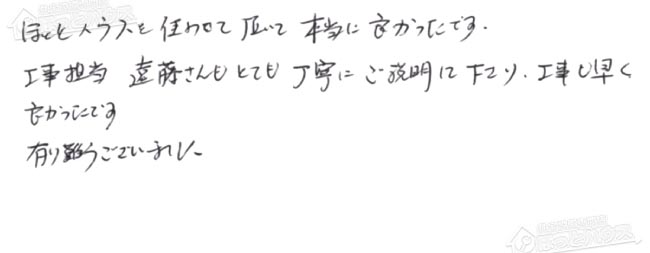 ほっとハウスを任わせて頂いて本当に良かったです.
工事担当 遠藤さんもとても丁寧にご説明に下さり、工事も早く
良かったです
有り難うございました
ほっとハウス